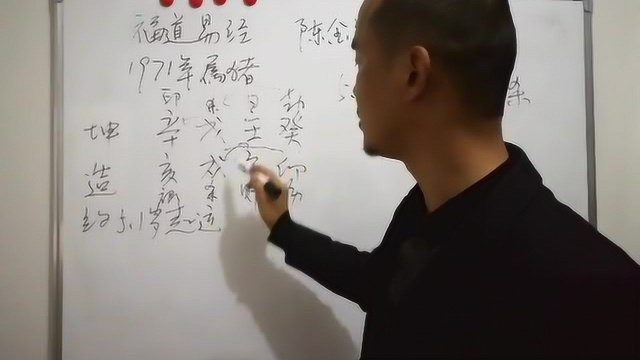 福道易经 陈金
1971年属猪
印 杀 日 劫 杀
坤 辛 戊 壬 癸
造 亥 戌 卯
约5.1岁起运